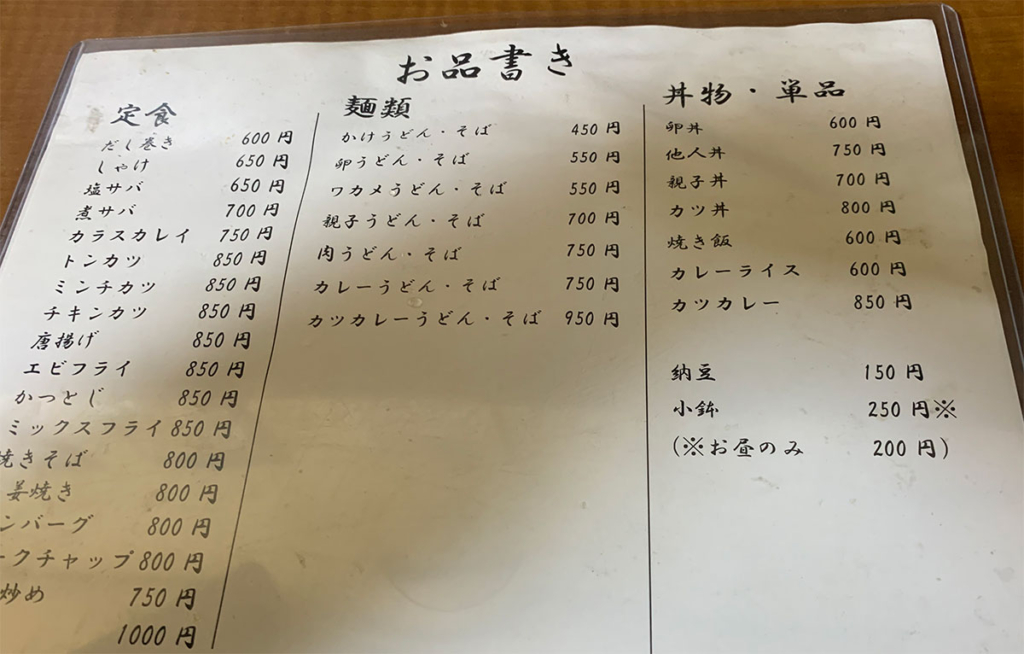 お品書き
定食
だし巻き 600円
しゃけ 650円
塩サバ 650円
煮サバ 700円
カラスカレイ 750円
トンカツ 850円
ミンチカツ 850円
チキンカツ 850円
唐揚げ 850円
エビフライ 850円
かつとじ 850円
ミックスフライ 850円
焼きそば 800円
姜焼き 800円
ンバーグ 800円
ークチャップ 800円
炒め 750円
1000円
麺類
かけうどん・そば 450円
卵うどん・そば 550円
ワカメうどん・そば 550円
親子うどん・そば 700円
肉うどん・そば 750円
カレーうどん・そば 750円
カツカレーうどん・そば 950円
丼物・単品
卵丼 600円
他人丼 750円
親子丼 700円
カツ丼 800円
焼き飯 600円
カレーライス 600円
カツカレー 850円
納豆 150円
小鉢 250円※
(※お昼のみ 200円)